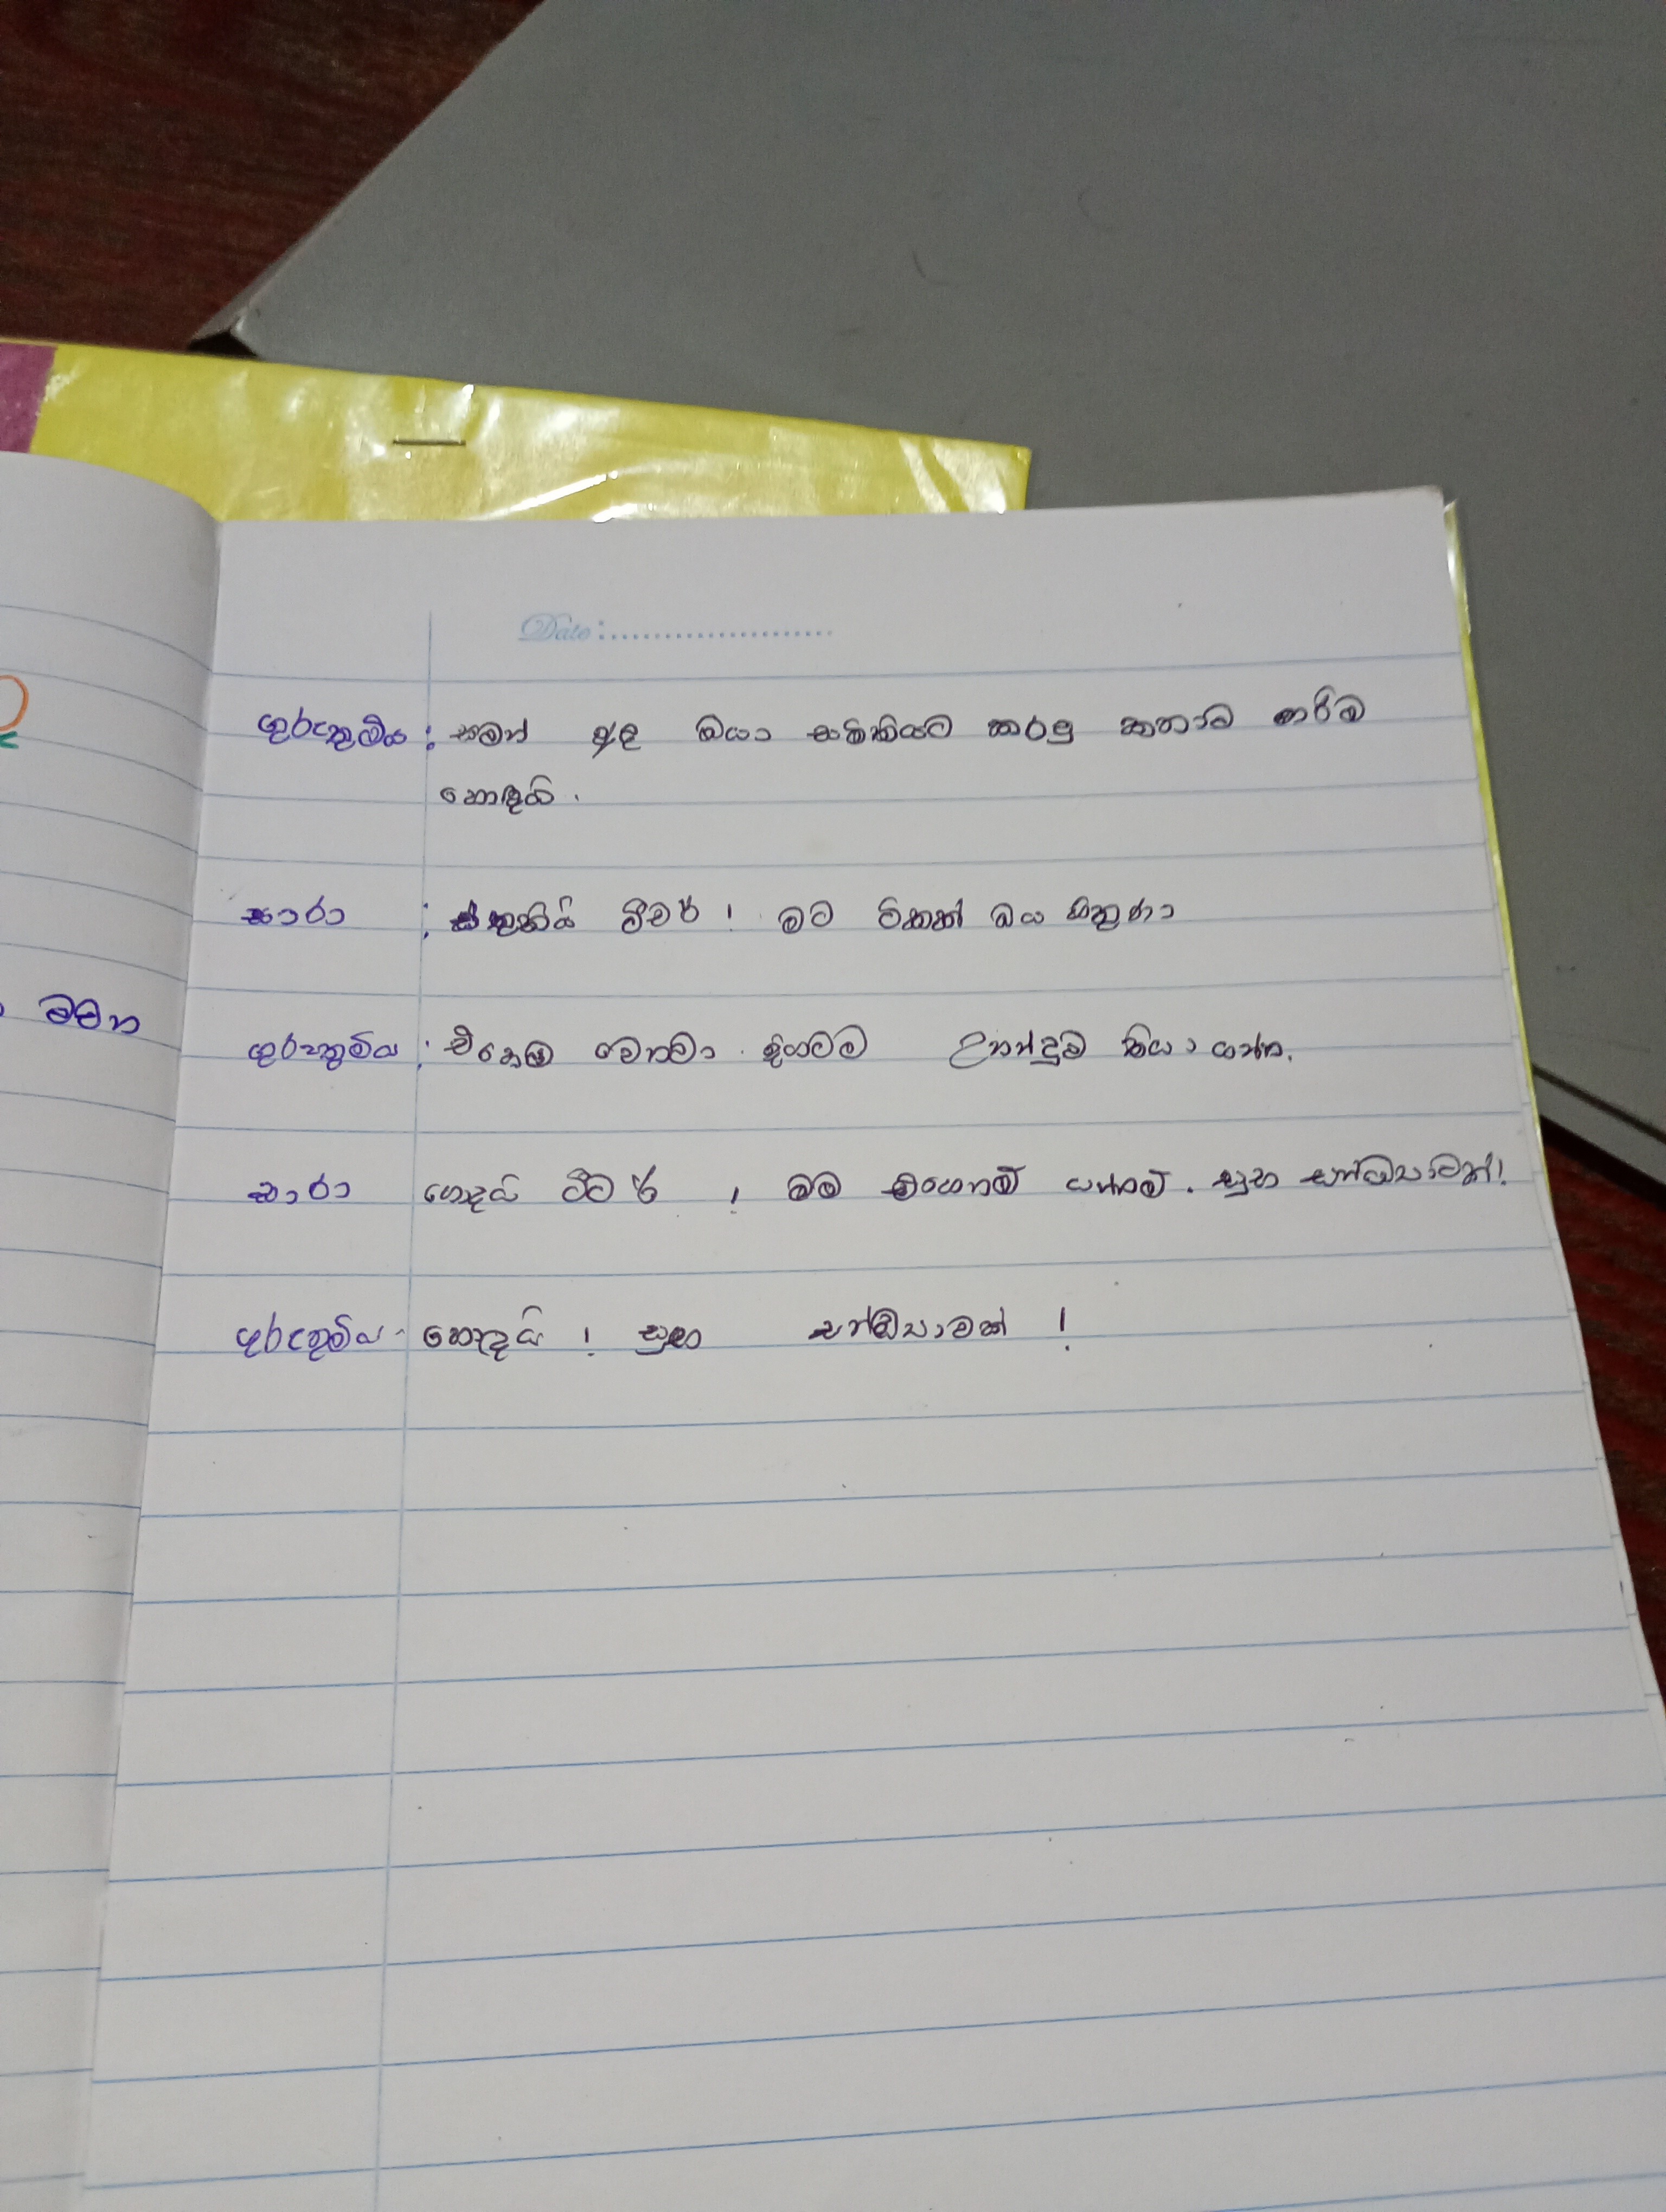 Date :
ගුරුතුමිය : සමන් අද ඔයා සමිතියට කරපු කතාව හරිම
හොඳයි.
සාරා : ස්තූතියි ටීචර් ! මට ටිකක් බය හිතුණා
මවන
ගුරුතුමිය : එහෙම වෙනවා දිගටම උනන්දුව තියා ගන්න.
සාරා හොදයි ටීචර් ! මම එහෙනම් යන්නම්. සුභ සන්ධ්‍යාවක්!
ගුරුතුමිය - හොඳයි ! සුභ සන්ධ්‍යාවක් !